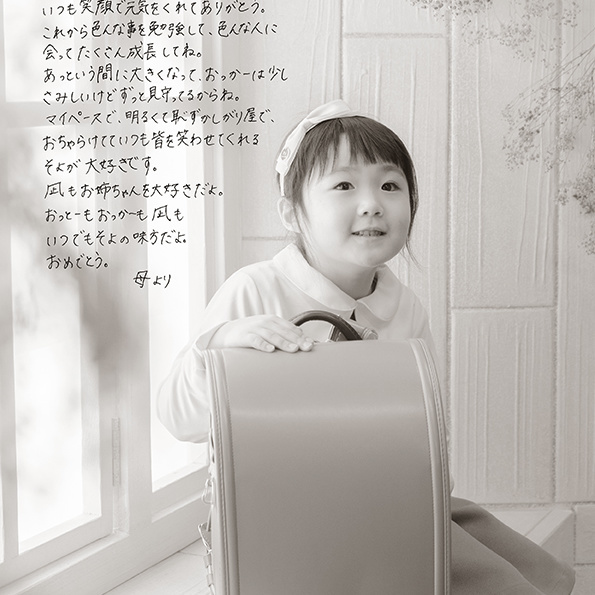 いつも笑顔で元気をくれてありがとう。
これから色んな事を勉強して、色んな人に
会ってたくさん成長してね。
あっという間に大きくなって、おっかーは少し
さみしいけどずっと見守ってるからね。
マイペースで、明るくて恥ずかしがり屋で、
おちゃらけてていつも皆を笑わせてくれる
そよが大好きです。
凪もお姉ちゃんを大好きだよ。
おっとーもおっかーも凪も
いつでもそよの味方だよ。
おめでとう。
母より